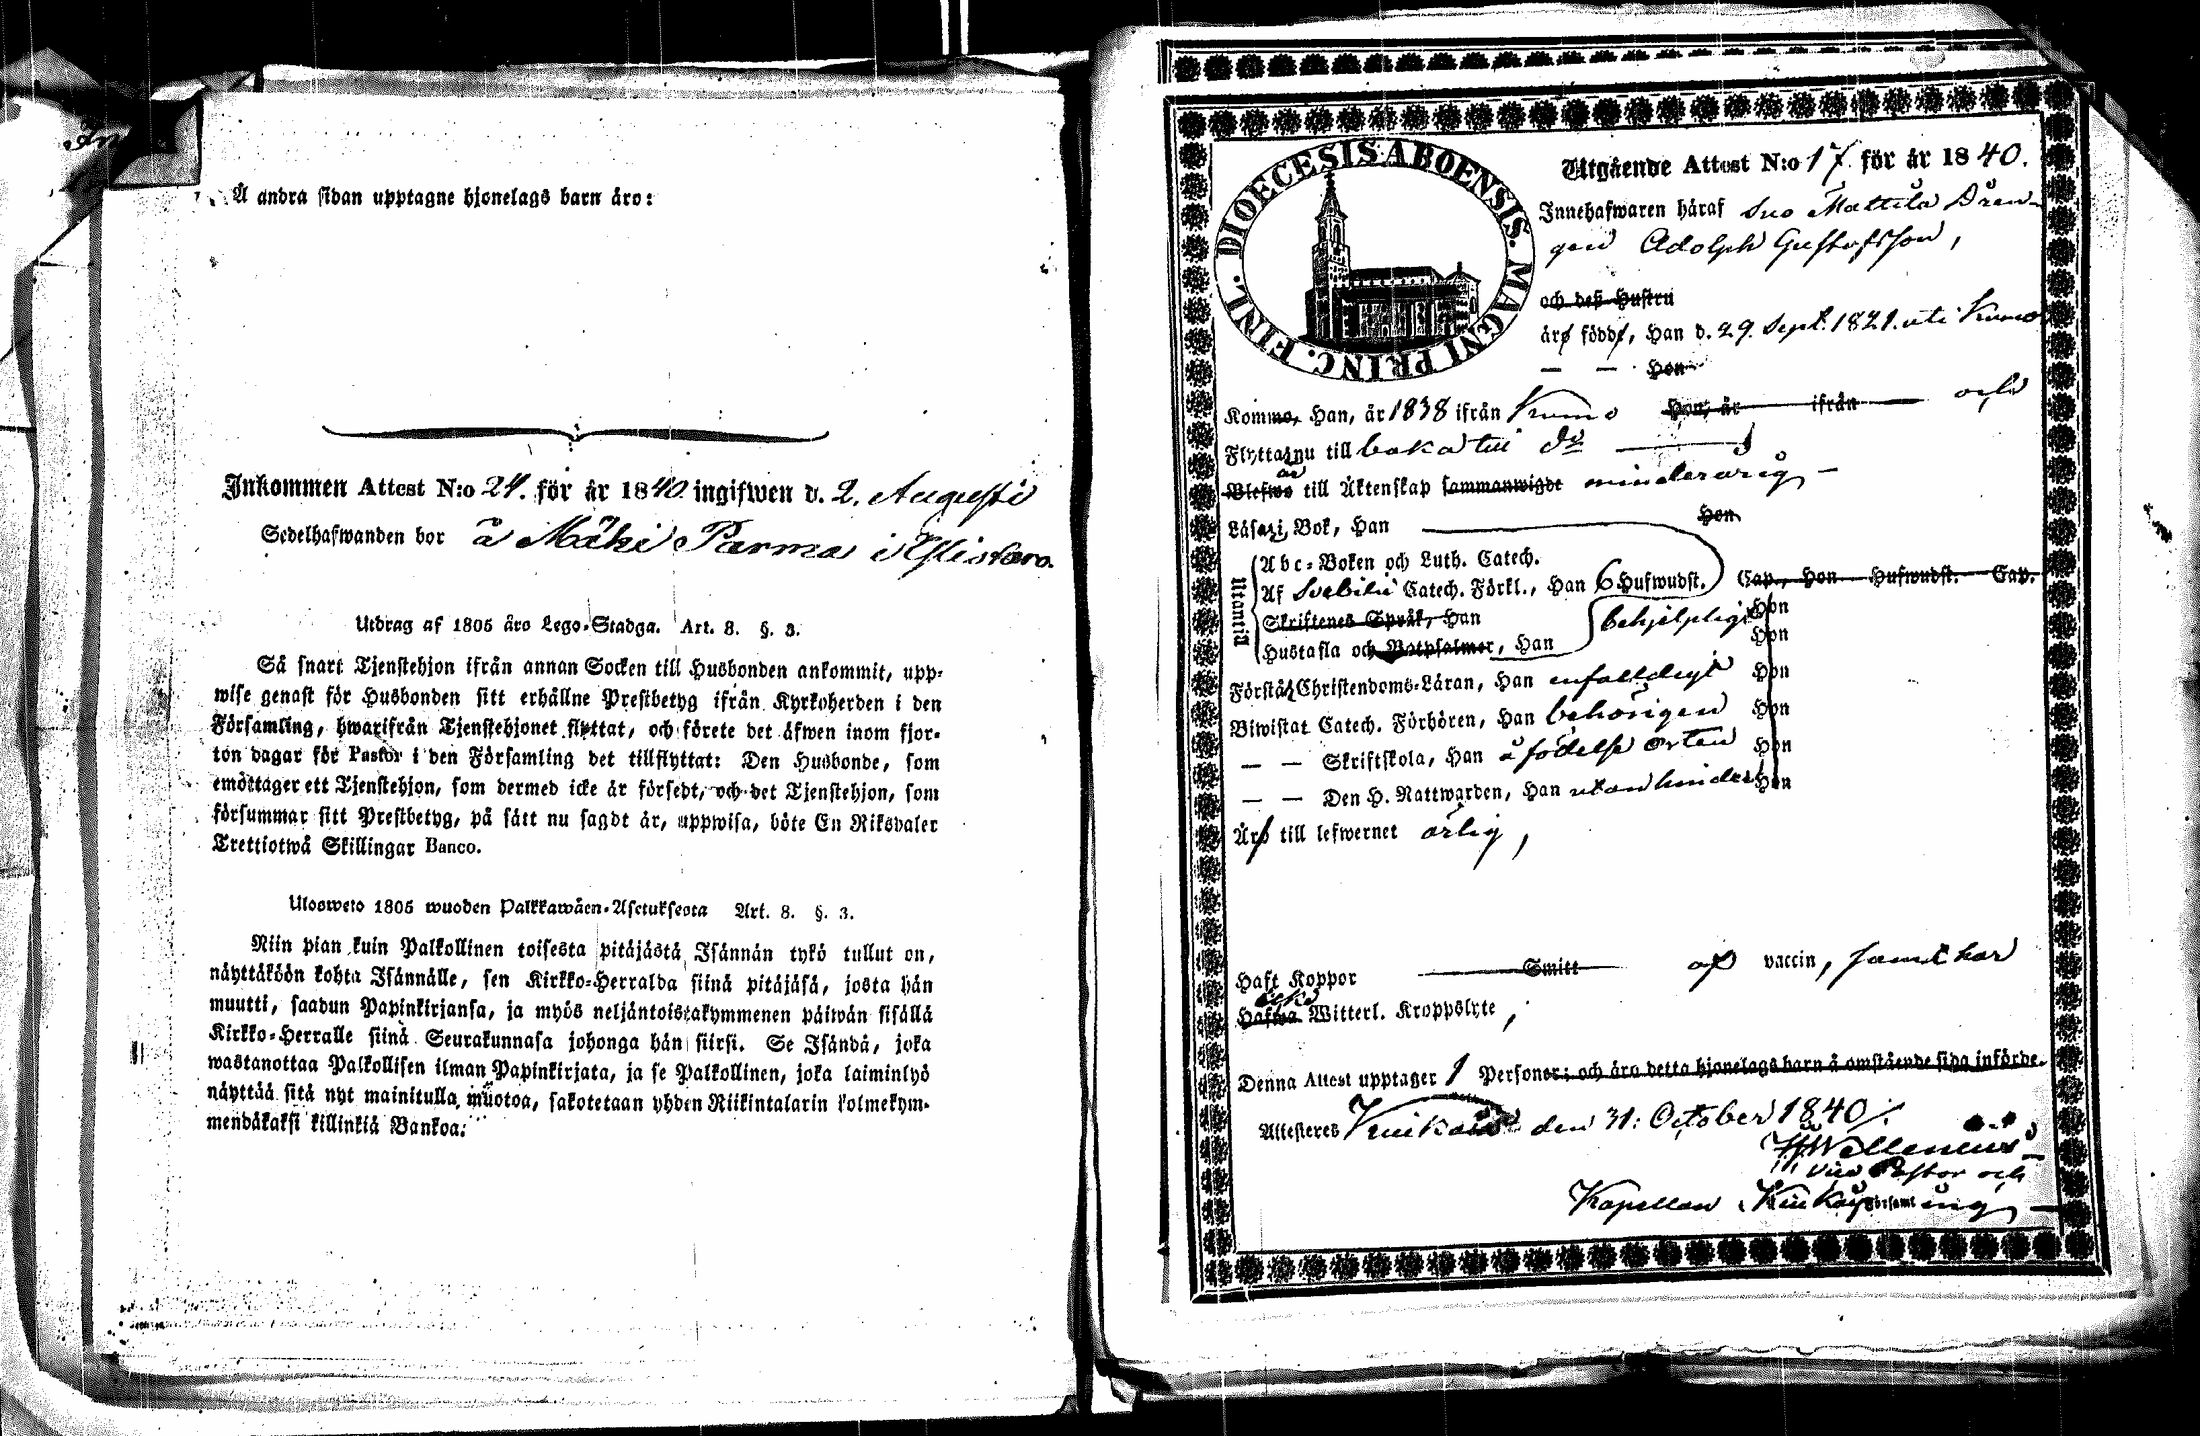 Å andra sidan upptagne hjonelags barn äro:
Inkommen Attest N:o 24. för år 1840 ingifwen d. 2. Augusti
Sedelhafwanden bor å Mäki Parma i
Utdrag af 1805 års Lego-Stadga. Art. 8. §. 3.
Så snart Tjenstehjon ifrån annan Socken till Husbonden ankommit, upp-
wise genast för Husbonden sitt erhållne Prestbetyg ifrån Kyrkoherden i den
Församling, hwarifrån Tjenstehjonet flyttat, och förete det äfwen inom fjor-
ton dagar för Pastor i den Församling det tillflyttat: Den Husbonde, som
emottager ett Tjenstehjon, som dermed icke är försedt, och det Tjenstehjon, som
försummar sitt Prestbetyg, på sätt nu sagdt är, uppwisa, böte En Riksdaler
Trettiotwå Skillingar Banco.
Uloswelo 1805 wuoden Palkkawäen-Asetuksesta Art. 8. §. 3.
Niin pian kuin Palkollinen toisesta pitäjästä Isännän tykö tullut on,
näyttäköön kohta Isännälle, sen Kirkko-Herralda siinä pitäjäsä, josta hän
muutti, saadun Papinkirjansa, ja myös neljäntoistakymmenen päiwän sisällä
Kirkko-Herralle siinä Seurakunnasa johonga hän siirsi. Se Isändä, joka
wastanottaa Palkollisen ilman Papinkirjata, ja se Palkollinen, joka laiminlyö
näyttää sitä nyt mainitulla muotoa, sakotetaan yhden Riikintalarin kolmekym-
mendäkaksi killinkiä Bankoa.
DIOECESIS ABOENSIS. MAGNI PRINC. FINL.
Utgående Attest N:o 17 för år 1840.
Innehafwaren häraf Suo Mattila Drän-
gen Adolph Gustafsson,
och deß Hustru
äro födde, Han d. 29. Sept. 1821. uti Kumo
— — Hon
Komme, Han, år 1838 ifrån Kumo Hon, år ifrån och
Flytta nu till baka till do
Blefwo är till Äktenskap sammanwigde minderårig —
Läsa i Bok, Han Hon
Utantill
Abc-Boken och Luth. Catech.
Af Svebilii Catech. Förkl., Han 6 Hufwudst. Cap., Hon Hufwudst. Cap.
Skriftenes Språk, Han behjelpligt Hon
Hustafla och Botpsalmer, Han Hon
Förstå Christendoms-Läran, Han enfaldigt Hon
Biwistat Catech. Förhören, Han behörigen Hon
— — Skriftskola, Han å födelse orten Hon
— — Den H. Nattwarden, Han utan hinder Hon
Äro till lefwernet ärlig,
Haft Koppor Smitt af vaccin, samt har
Hafwa icke Witterl. Kroppslyte,
Denna Attest upptager 1 Personer; och äro detta hjonelags barn å omstående sida införde.
Attesteres Kiukais den 31. October 1840
Wallenius
Vice Pastor och
Kapellan i Kiukais Församling